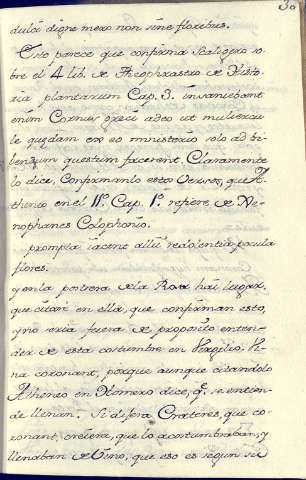 30
dulci digne mero non sine floribus.
Esto parece que confirma Scaligero so-
bre el 4 lib. de Theophrastro de Histo-
ria plantarum Cap. 3. insaniebant
enim Comus greci adeo ut muliercu-
le quædam ex eo ministerio solo ad bi-
bendum questum facerent. Claramente
lo dice, Confirmanlo estos Versos, que A-
theneo en el 11.º Cap. 1.º refiere de Xe-
nophanes Colophonio.
prompta iacent allii redolentia pocula
flores.
y en la postrera de la Rosa hai lugar,
que citare en ella, que confirman esto,
y no seria fuera de proposito enten-
der de esta costumbre en Vergilio Vi-
na coronant, porque aunque citandolo
Atheneo en Homero dice, q.e se entien-
de llenan. Si dixera Crateres, que co-
ronant, creiera, que lo acostumbraban, y
llenaban de Vino, que eso es segun su